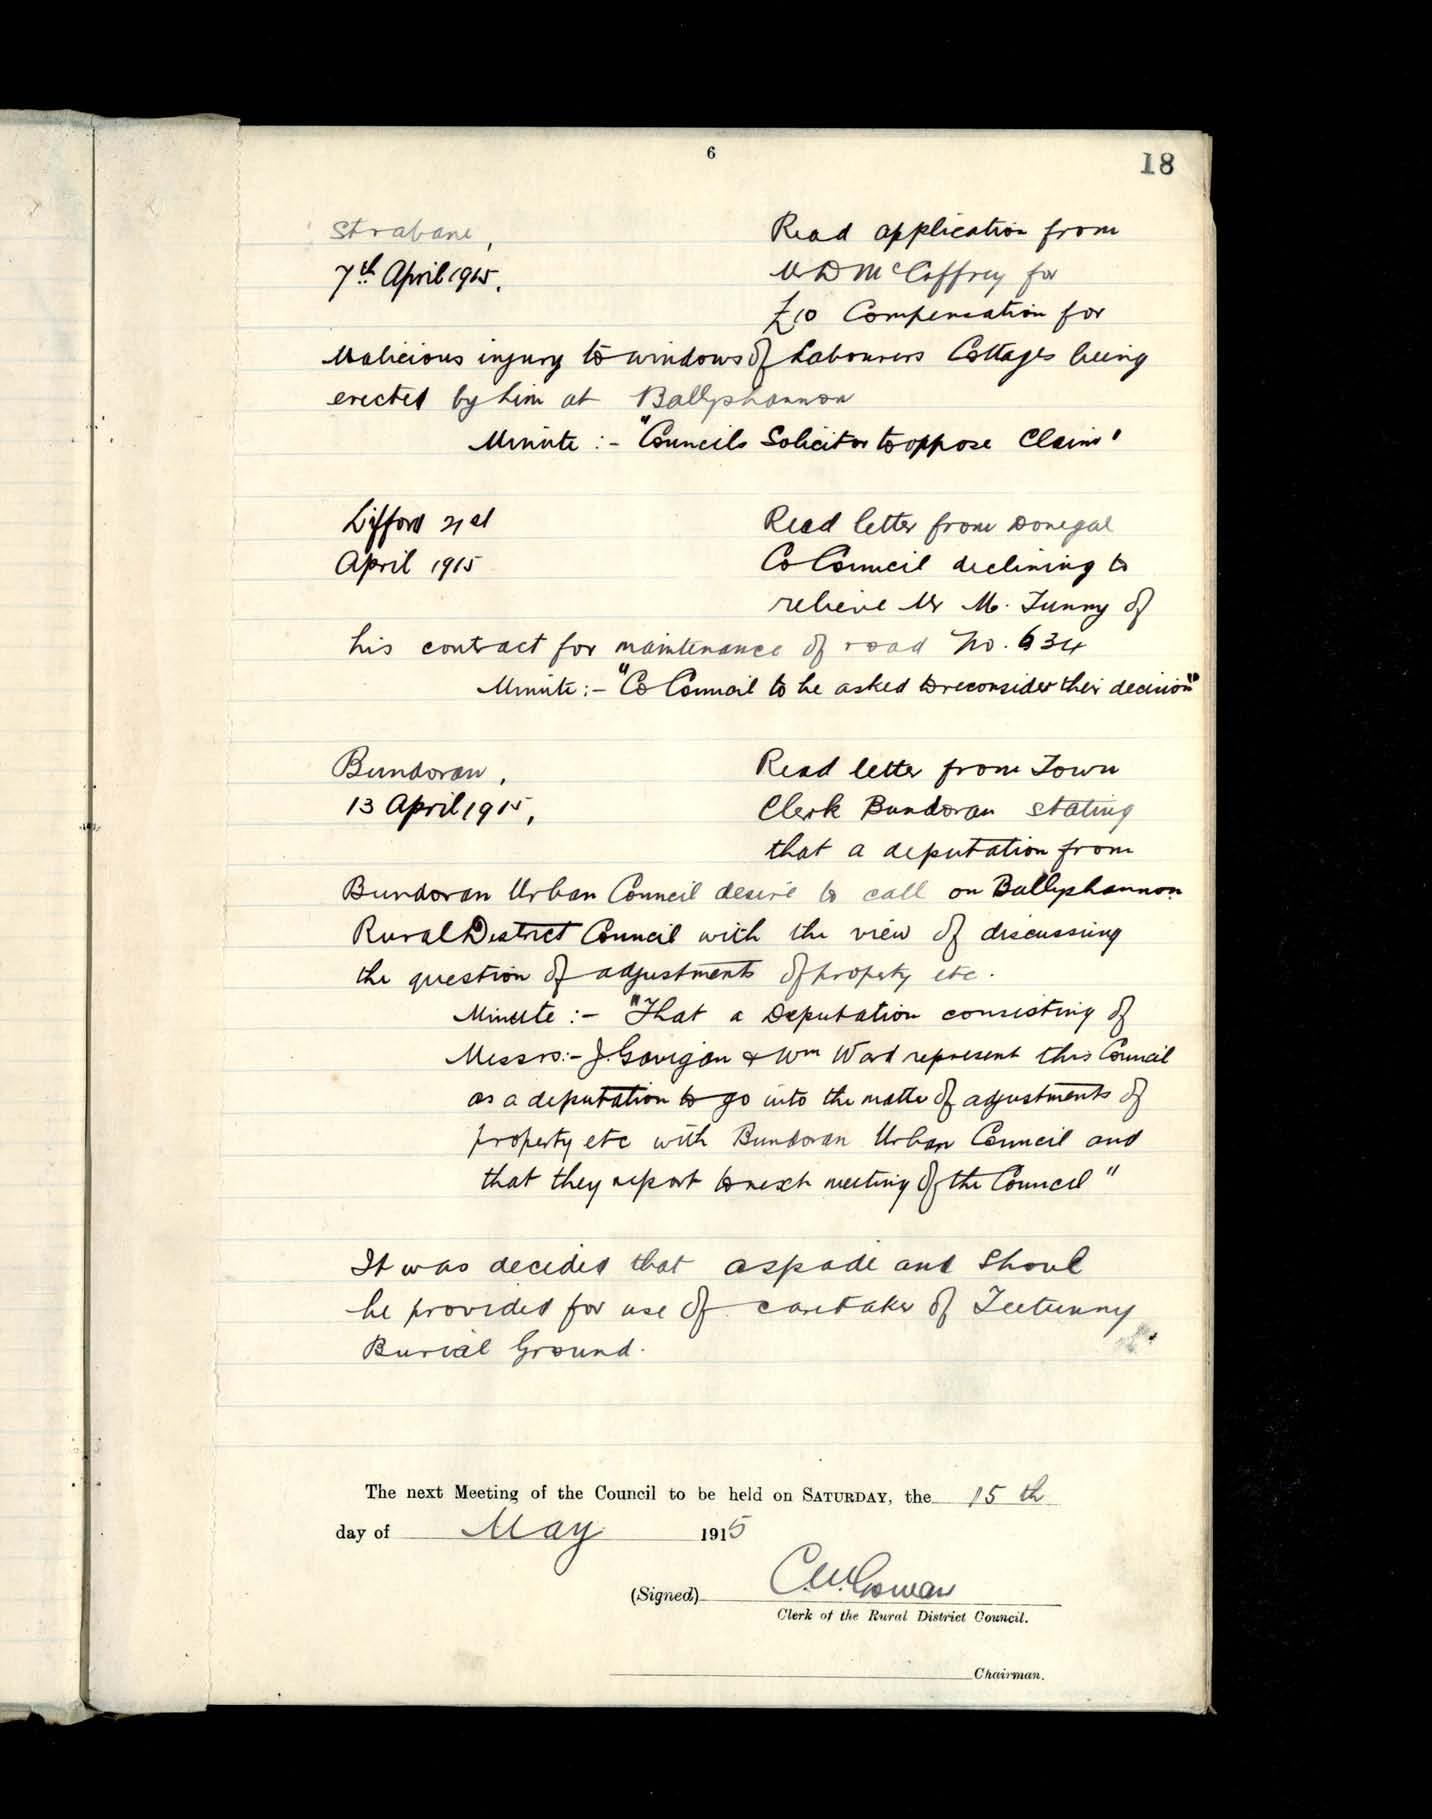 6
18
Strabane,
7th April 1915.
Read application from
Mr D McCaffrey for
£10 Compensation for
Malicious injury to windows of Labourers Cottages being
erected by him at Ballyshannon
Minute :- "Councils Solicitor to oppose Claim"
Lifford 21st
April 1915
Read letter from Donegal
Co Council declining to
relieve Mr M. Tunny of
his contract for maintenance of road No. 634
Minute :- "Co Council to be asked to reconsider their decision"
Bundoran,
13 April 1915,
Read letter from Town
Clerk Bundoran stating
that a deputation from
Bundoran Urban Council desire to call on Ballyshannon
Rural District Council with the view of discussing
the question of adjustments of property etc.
Minute :- "That a Deputation consisting of
Messrs:- J. Gavigan & Wm Ward represent this Council
as a deputation to go into the matter of adjustments of
property etc with Bundoran Urban Council and
that they report to next meeting of the Council"
It was decided that a spade and Shovel
be provided for use of caretaker of Teetunny
Burial Ground.
The next Meeting of the Council to be held on SATURDAY, the 15th
day of May 1915
(Signed) C. McGowan
Clerk of the Rural District Council.
Chairman.